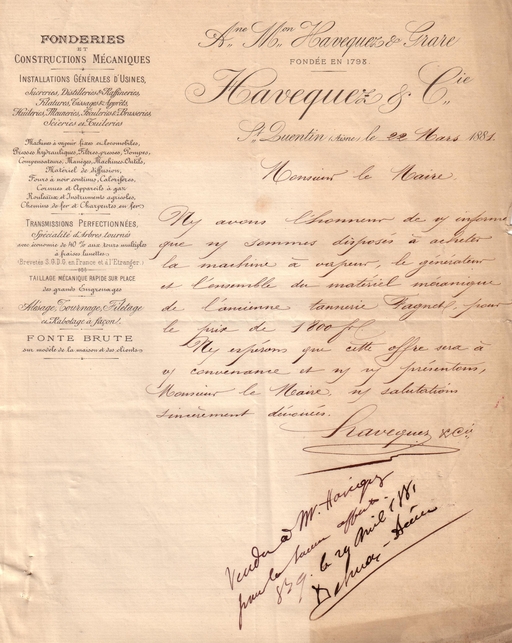 FONDERIES
ET
CONSTRUCTIONS MÉCANIQUES
INSTALLATIONS GÉNÉRALES D'USINES,
Sucreries, Distilleries & Raffineries,
Filatures, Tissages & Apprêts,
Huileries, Meuneries, Féculeries & Brasseries
Scieries et Tuileries
Machines à vapeur fixes et locomobiles,
Presses hydrauliques, Filtres-presses, Pompes,
Compensateurs, Manèges, Machines-Outils,
Matériel de diffusion,
Fours à noir continus, Calorifères,
Cornues et Appareils à gaz
Rouleaux et Instruments agricoles,
Chemins de fer et Chargeurs en fer
TRANSMISSIONS PERFECTIONNÉES,
Spécialité d'Arbres tournés
avec économie de 40 % aux tours multiples
à fraises lunettes
(Brevetés S.G.D.G. en France et à l'Étranger)
TAILLAGE MÉCANIQUE RAPIDE SUR PLACE
des grands Engrenages
Alésage, Tournage, Filetage
et Rabotage à façon
FONTE BRUTE
sur modèle de la maison et des clients
Ane Mon Havequez & Grare
FONDÉE EN 1793
Havequez & Cie
St Quentin (Aisne) le 22 Mars 1881
Monsieur le Maire.
Ns avons l'honneur de vs informer
que ns sommes disposés à acheter
la machine à vapeur, le générateur
et l'ensemble du matériel mécanique
de l'ancienne tannerie pour
le prix de 1800 f
Ns espérons que cette offre sera à
vs convenance et ns vs présentons,
Monsieur le Maire, ns salutations
sincèrement dévouées.
Havequez & Cie
Vendu à Mr Havequez
pour la somme offerte
le 29 Avril 1881